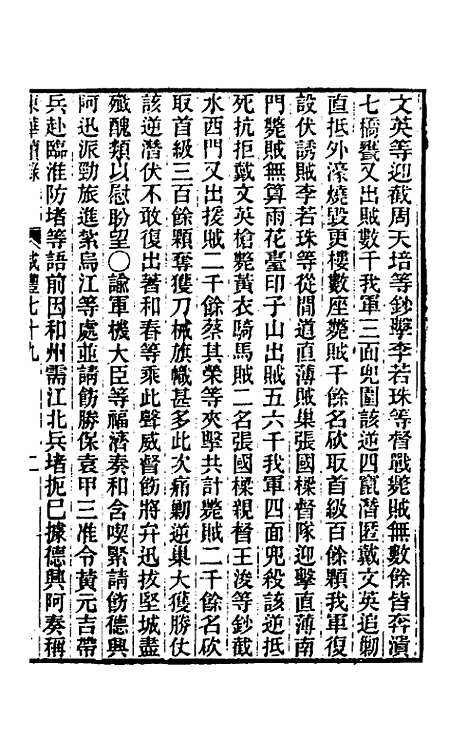 文英等迎截周天培等鈔擊李若珠等督戰斃賊無數餘皆奔潰
七橋甕又出賊數千我軍三面兜圍該逆四竄潛匿戴文英追勦
直抵外濠燒毀更樓數座斃賊千餘名砍取首級百餘顆我軍復
設伏誘賊李若珠等從間道直薄賊巢張國樑督隊迎擊直薄南
門斃賊無算雨花臺印子山出賊五六千我軍四面兜殺該逆抵
死抗拒戴文英槍斃黃衣騎馬賊二名張國樑親督王浚等鈔截
水西門又出援賊二千餘蔡其榮等夾擊共計斃賊二千餘名砍
取首級三百餘顆奪獲刀械旗幟甚多此次痛勦逆巢大獲勝仗
該逆潛伏不敢復出著和春等乘此聲威督飭將弁迅拔堅城盡
殲醜類以慰盼望○諭軍機大臣等福濟奏和含喫緊請飭德興
阿迅派勁旅進紮烏江等處並請飭勝保袁甲三准令黃元吉帶
兵赴臨淮防堵等語前因和州需江北兵堵扼已據德興阿奏稱
東華續錄 咸豐七十九 二